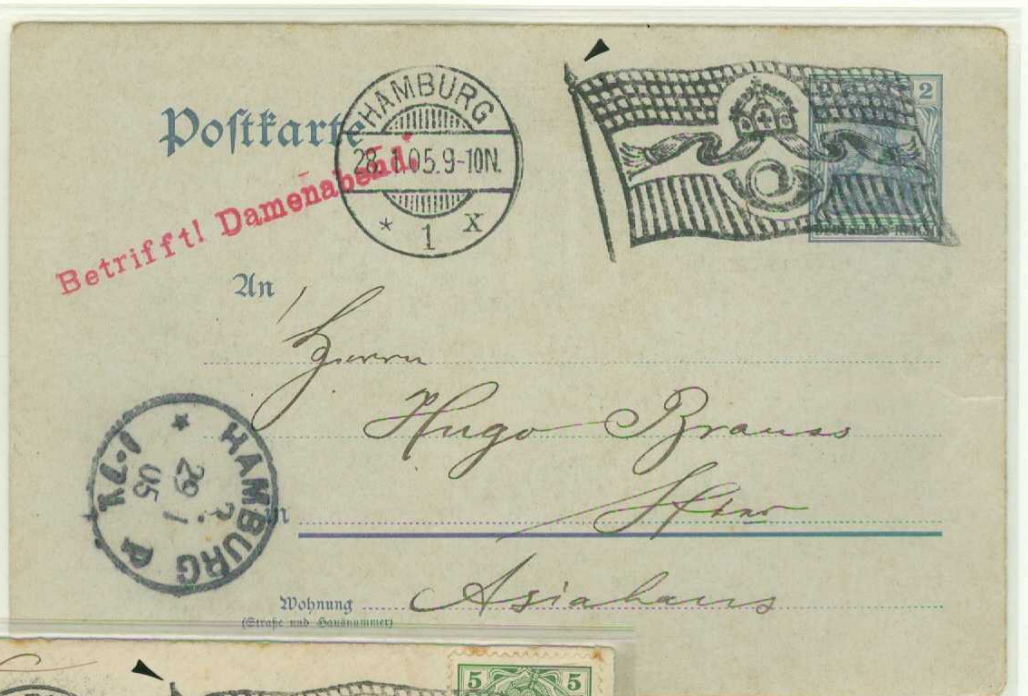 Postkarte
HAMBURG
28.1.05.9-10N.
* 1 X
2
Betrifft! Damenabend.
An
Herrn
Hugo Brauss
in Hier
HAMBURG
29.1
05
Wohnung Asiahaus
(Straße und Hausnummer)
5 5